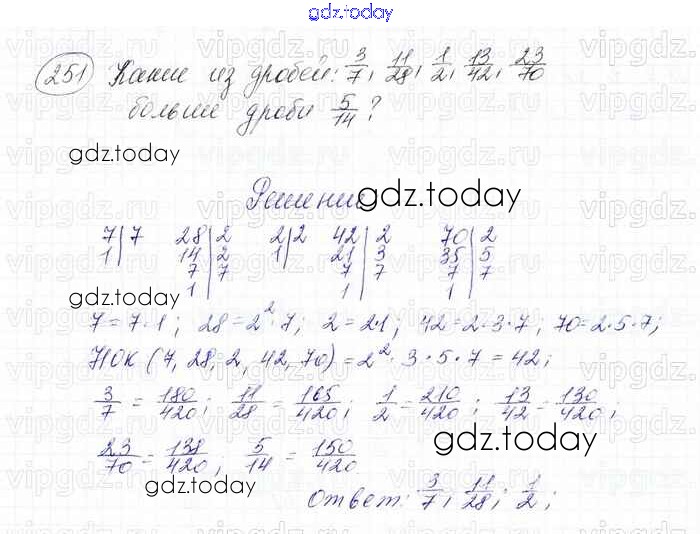 gdz.today
251 Какие из дробей: 3/7, 11/28, 1/2, 13/42, 23/70
больше дроби 5/14?
gdz.today
Решение
gdz.today
7|7 28|2 2|2 42|2 70|2
1| 14|2 1| 21|3 35|5
7|7 7|7 7|7
1| 1| 1|
gdz.today
7=7·1; 28=2²·7; 2=2·1; 42=2·3·7; 70=2·5·7;
НОК (7, 28, 2, 42, 70) = 2²·3·5·7 = 42;
3/7 = 180/420; 11/28 = 165/420; 1/2 = 210/420; 13/42 = 130/420;
23/70 = 138/420; 5/14 = 150/420
gdz.today
gdz.today
Ответ: 3/7; 11/28; 1/2;